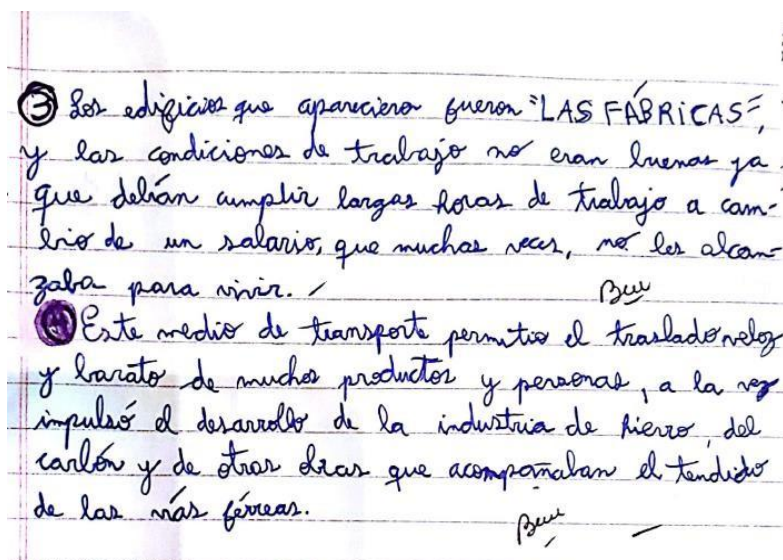 ③ Los edificios que aparecieron fueron "LAS FÁBRICAS",
y las condiciones de trabajo no eran buenas ya
que debían cumplir largas horas de trabajo a cam-
bio de un salario, que muchas veces, no les alcan-
zaba para vivir.
Este medio de transporte permitio el traslado veloz
y barato de muchos productos y personas, a la vez
impulsó el desarrollo de la industria de hierro, del
carbón y de otras obras que acompañaban el tendido
de las vías férreas.